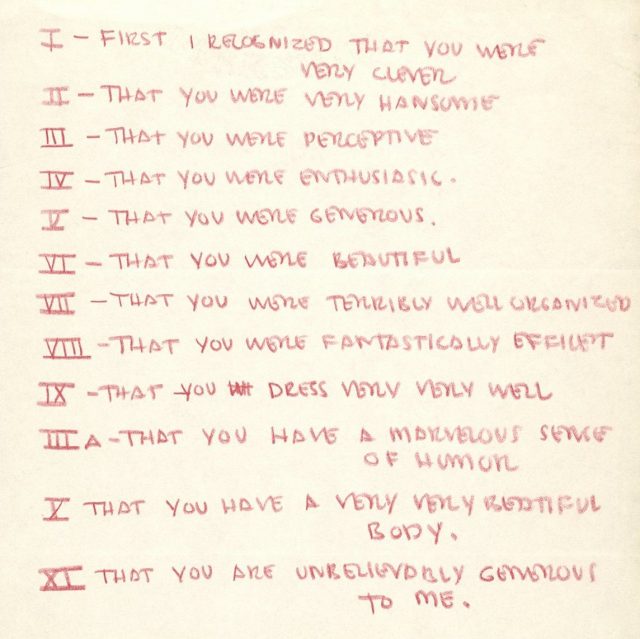 I - FIRST I RECOGNIZED THAT YOU WERE
VERY CLEVER
II - THAT YOU WERE VERY HANSOME
III - THAT YOU WERE PERCEPTIVE
IV - THAT YOU WERE ENTHUSIASIC.
V - THAT YOU WERE GENEROUS.
VI - THAT YOU WERE BEAUTIFUL
VII - THAT YOU WERE TERRIBLY WELL ORGANIZED
VIII - THAT YOU WERE FANTASTICALLY EFFICIENT
IX - THAT YOU DRESS VERY VERY WELL
III A - THAT YOU HAVE A MARVELOUS SENSE
OF HUMOR
V THAT YOU HAVE A VERY VERY BEATIFUL
BODY.
XI THAT YOU ARE UNBELIEVABLY GENEROUS
TO ME.